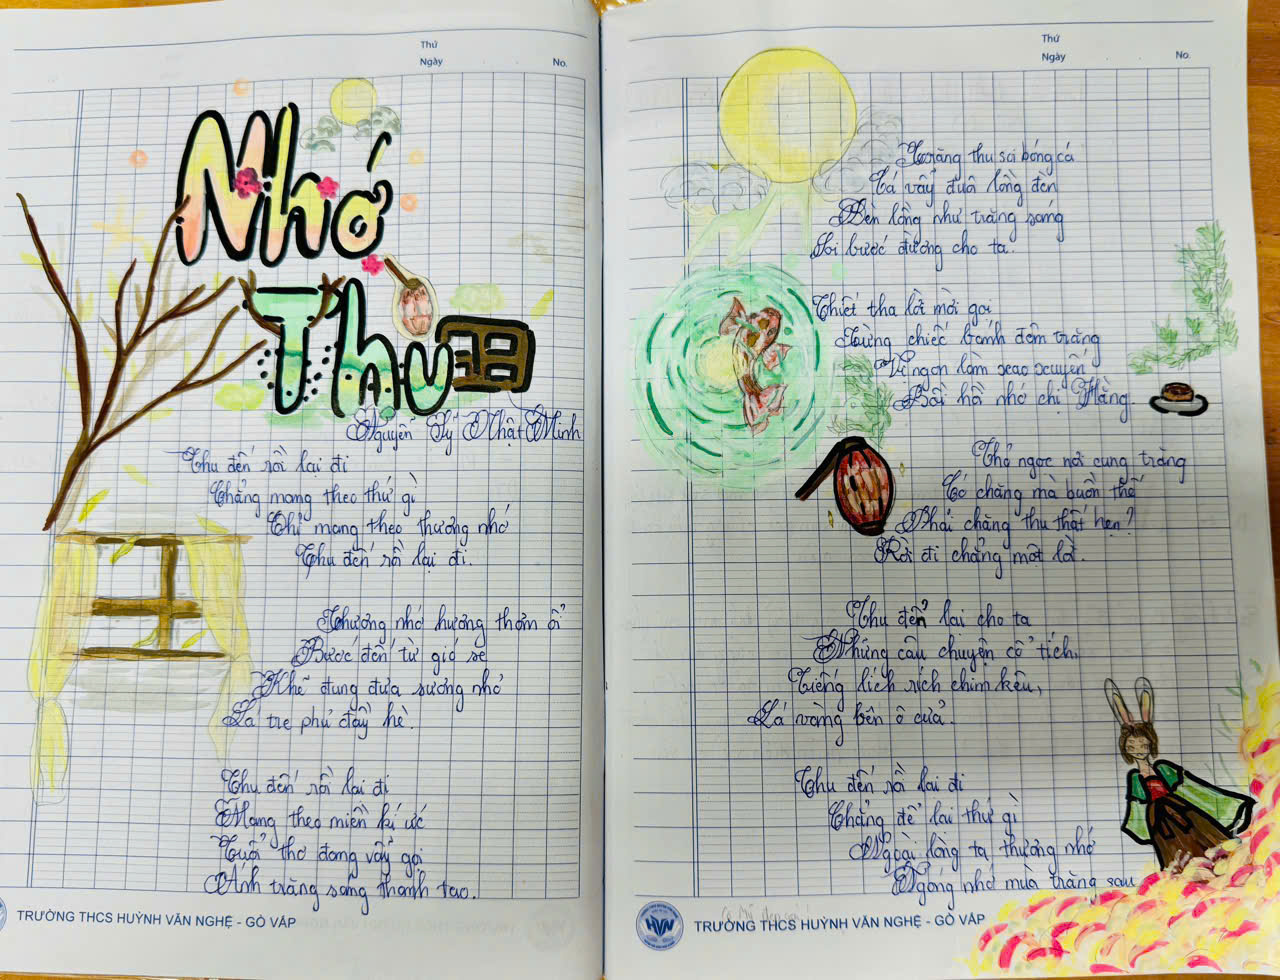 Thứ
Ngày No.
Nhớ
Thu
Nguyễn Lý Nhật Minh
Thu đến rồi lại đi
Chẳng mang theo thứ gì
Chỉ mang theo thương nhớ
Thu đến rồi lại đi.
Thương nhớ hương thơm ổi
Bước đến từ gió se
Khẽ đung đưa sương nhỏ
Lá tre phủ đầy hè.
Thu đến rồi lại đi
Mang theo miền kí ức
Tuổi thơ đang vẫy gọi
Ánh trăng sáng thanh tao.
TRƯỜNG THCS HUỲNH VĂN NGHỆ - GÒ VẤP
Thứ
Ngày No.
Trăng thu soi bóng cá
Cá vẫy đuôi lồng đèn
Đèn lồng như trăng sáng
Soi bước đường cho ta.
Thiết tha lời mời gọi
Từng chiếc bánh đêm trăng
Vị ngon làm xao xuyến
Bồi hồi nhớ chị Hằng.
Thỏ ngọc nơi cung trăng
Có chăng mà buồn thế
Phải chăng thu thất hẹn?
Rời đi chẳng một lời.
Thu đến lại cho ta
Những câu chuyện cổ tích,
Tiếng lích rích chim kêu,
Lá vàng bên ô cửa.
Thu đến rồi lại đi
Chẳng để lại thứ gì
Ngoài lòng ta thương nhớ
Ngóng nhớ mùa trăng sau
HVN
TRƯỜNG THCS HUỲNH VĂN NGHỆ - GÒ VẤP